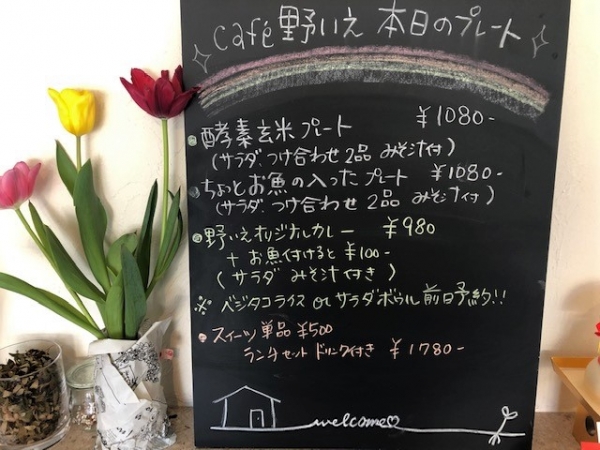 café 野いえ 本日のプレート
酵素玄米プレート ¥1080-
(サラダ つけ合わせ2品 みそ汁付)
ちょっとお魚の入ったプレート ¥1080-
(サラダ. つけ合わせ2品 みそ汁付)
野いえオリジナルカレー ¥980
+お魚付けると ¥100-
(サラダ みそ汁付き)
※ベジタコライス orサラダボウル 前日予約!!
スイーツ単品 ¥500
ランチセット ドリンク付き ¥1780-
welcome♡